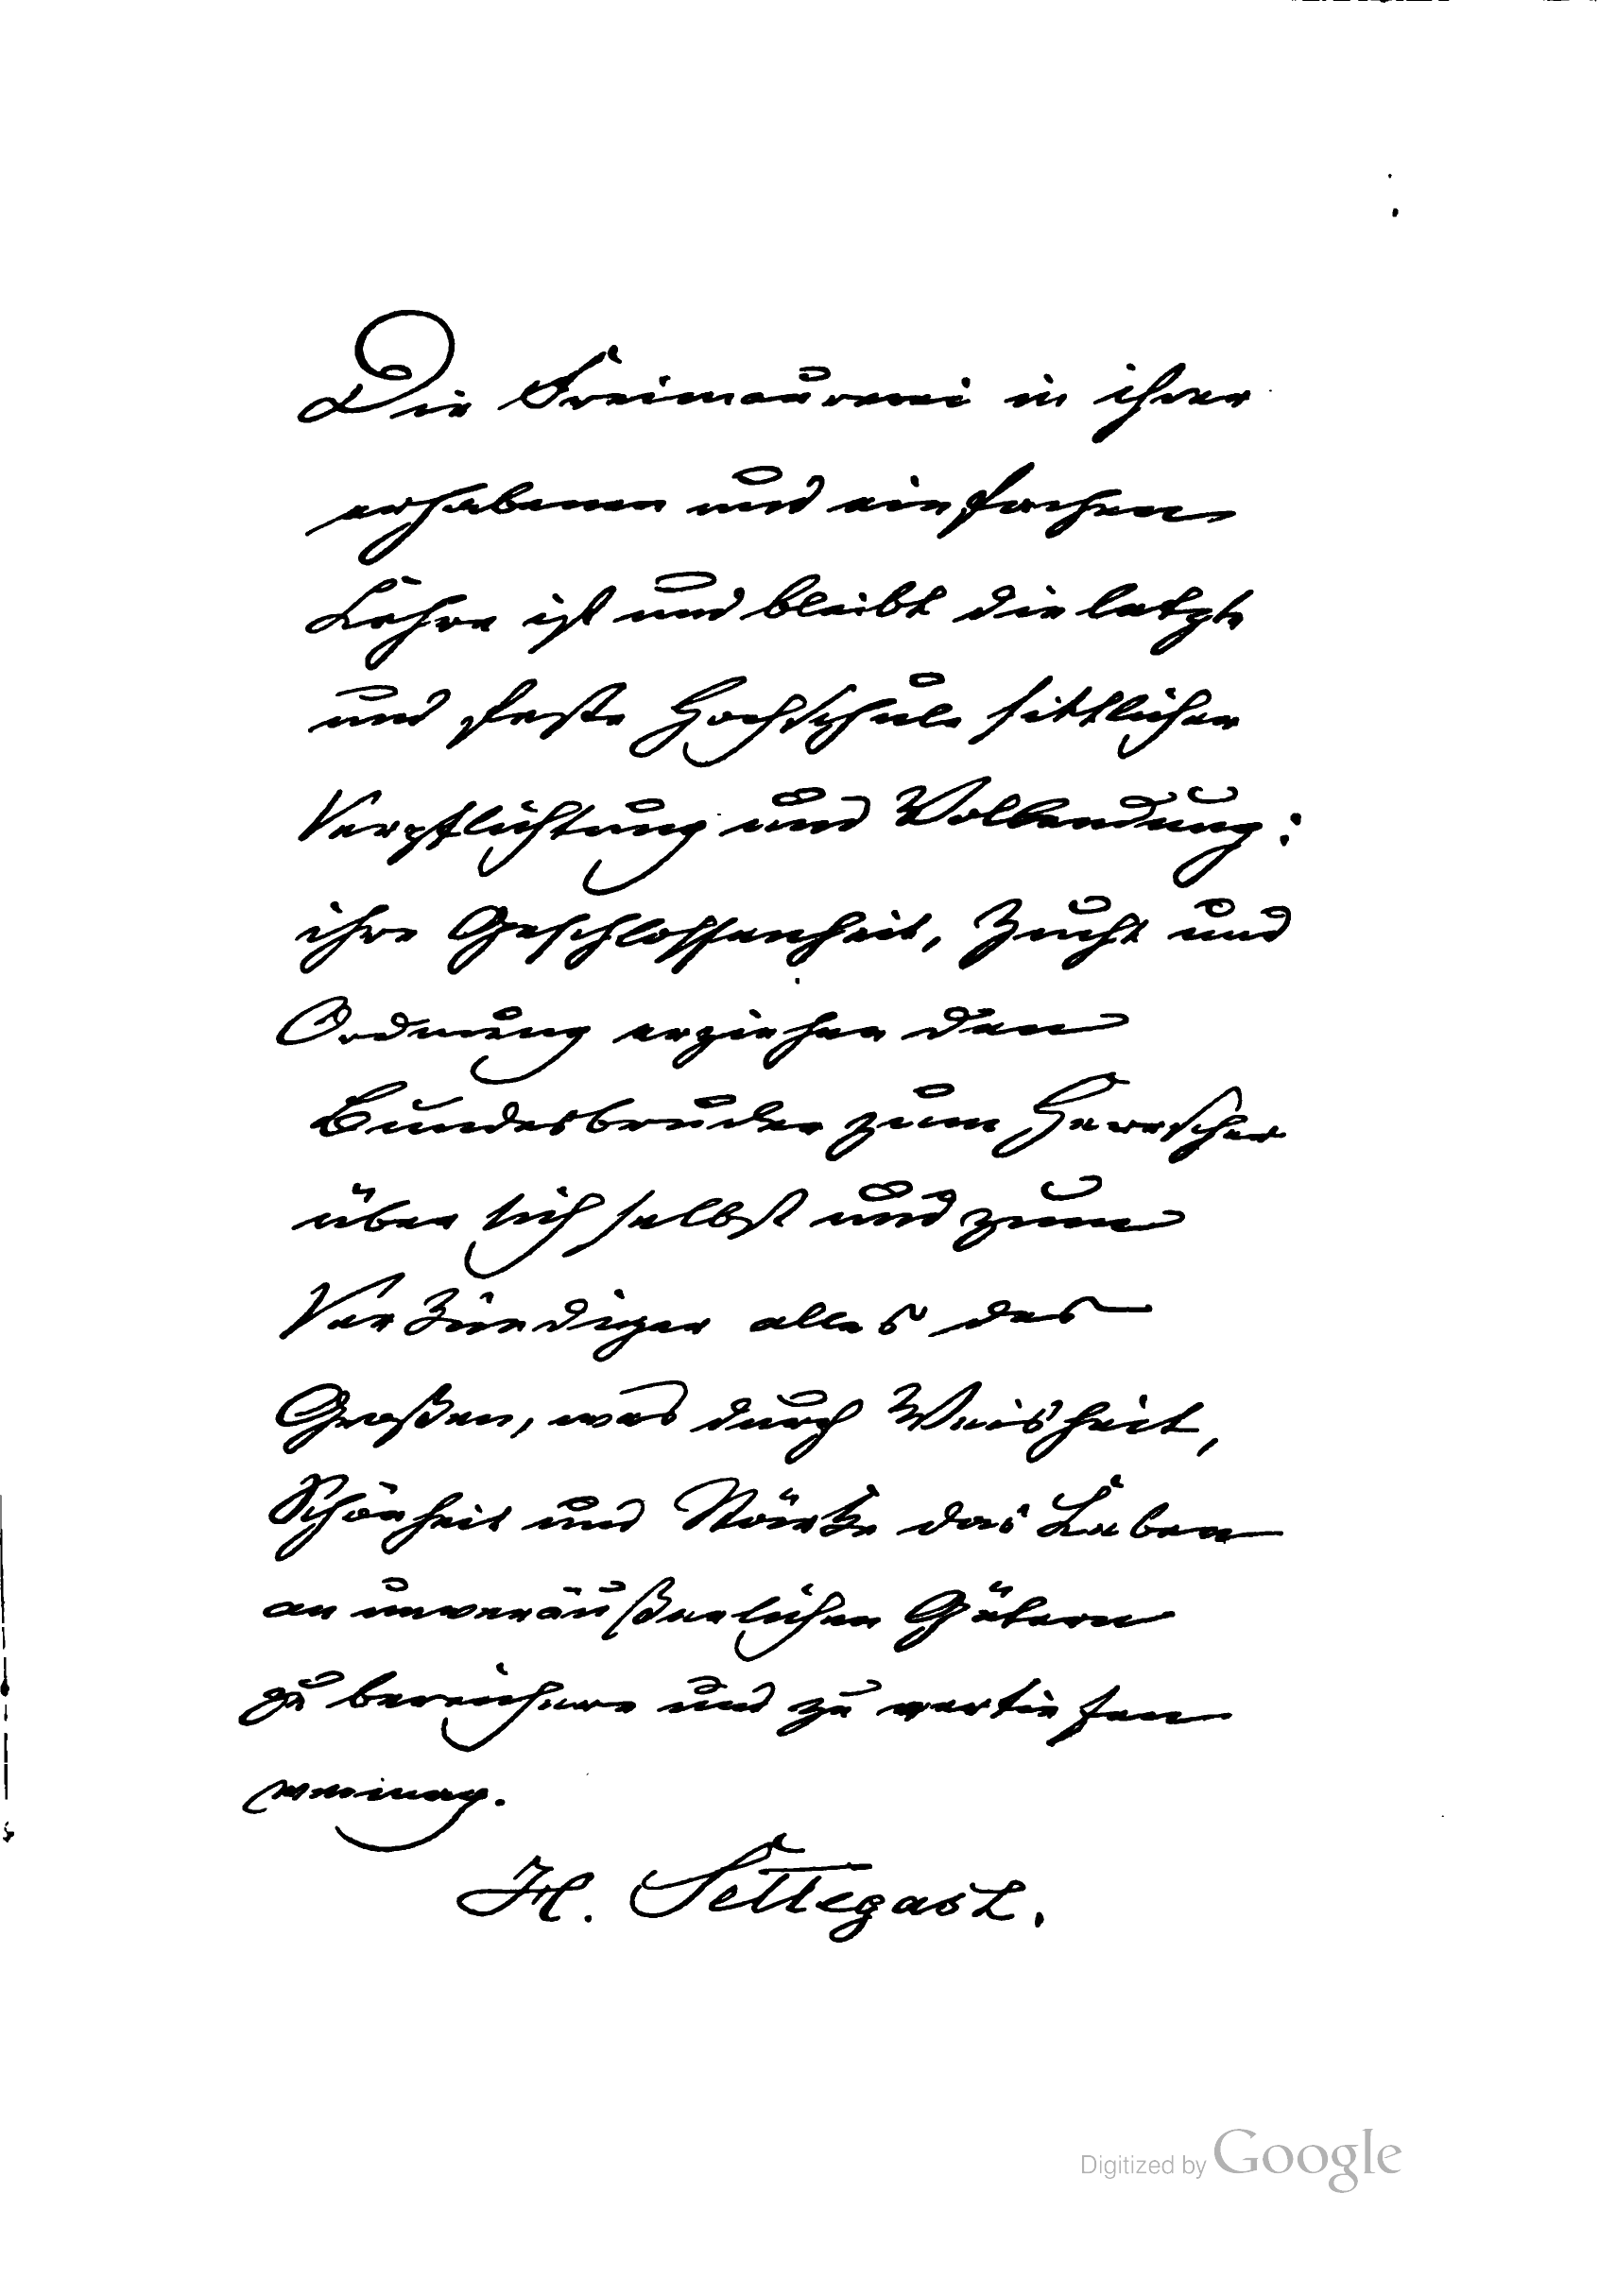 Die Freimaurerei in ihrer
erhabenen und einfachen
Lehre ist und bleibt die letzte
und feste Hochschule sittlicher
Verpflichtung und Vollendung:
ihre Geschlossenheit, Zucht und
Ordnung erziehen den
Bundesbruder zum Herrscher
über sich selbst und zum
Verkündiger alles des
Großen, was durch Weisheit,
Schönheit und Stärke das Leben
an unveräußerlichen Gütern
zu bereichern und zu vertiefen
vermag.
H. Settegast.
Digitized by Google